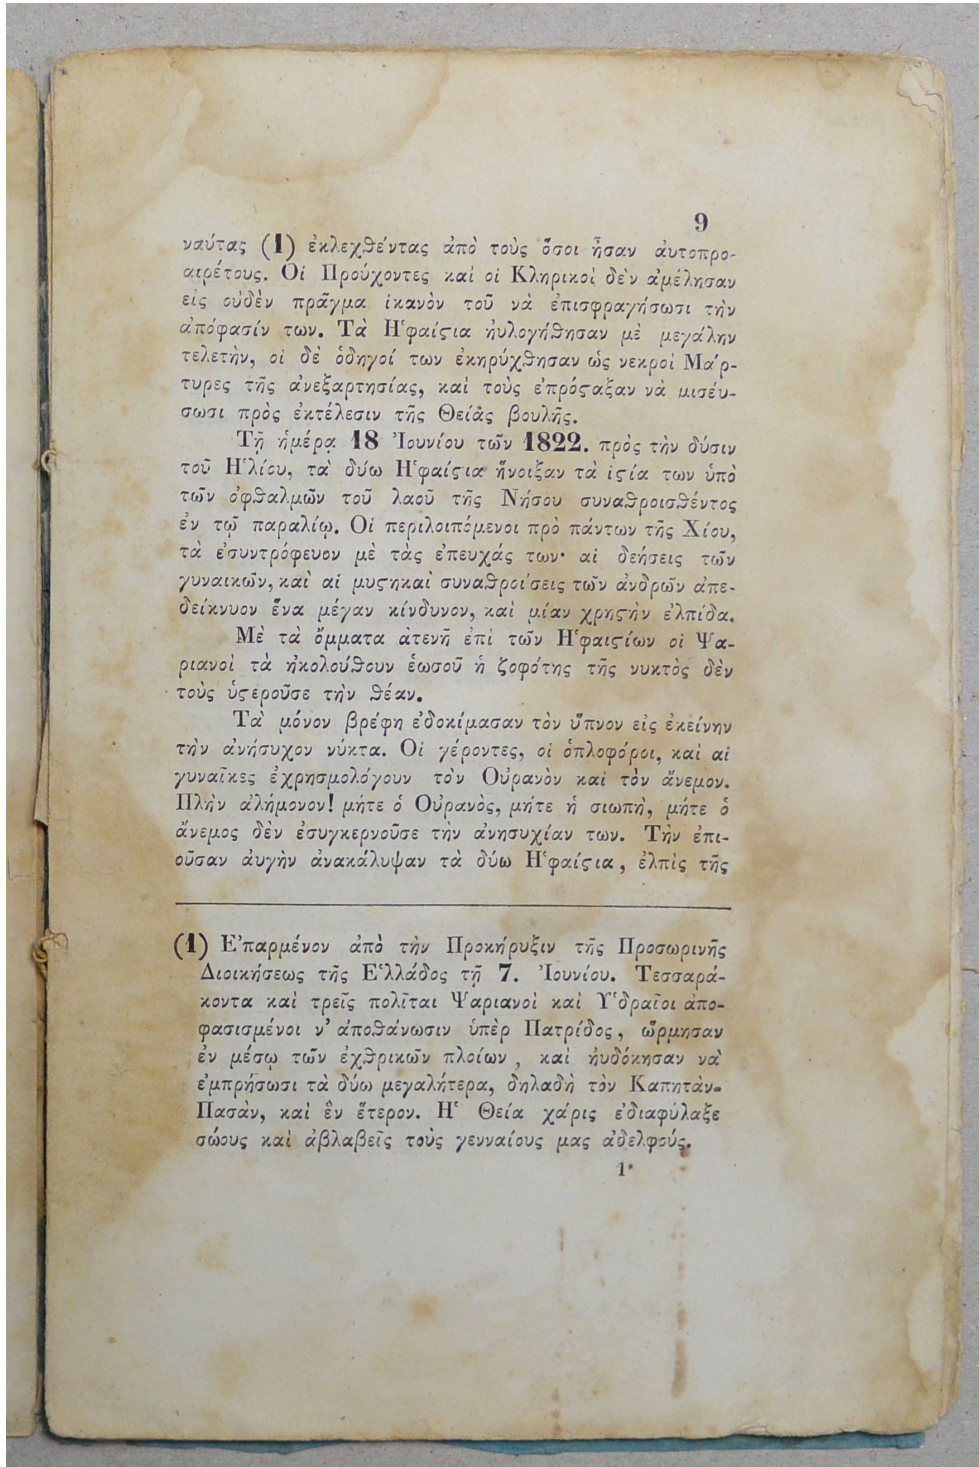 9
ναύτας (1) ἐκλεχθέντας ἀπὸ τοὺς ὅσοι ἦσαν αὐτοπρο-
αιρέτους. Οἱ Προύχοντες καὶ οἱ Κληρικοὶ δὲν ἀμέλησαν
εἰς οὐδὲν πρᾶγμα ἱκανὸν τοῦ νὰ ἐπισφραγήσωσι τὴν
ἀπόφασίν των. Τὰ Ἡφαίϛια ηὐλογήθησαν μὲ μεγάλην
τελετὴν, οἱ δὲ ὁδηγοί των ἐκηρύχθησαν ὡς νεκροὶ Μάρ-
τυρες τῆς ἀνεξαρτησίας, καὶ τοὺς ἐπρόϛαξαν νὰ μισέυ-
σωσι πρὸς ἐκτέλεσιν τῆς Θείας βουλῆς.
Τῇ ἡμέρᾳ 18 Ἰουνίου τῶν 1822. πρὸς τὴν δύσιν
τοῦ Ἡλίου, τὰ δύω Ἡφαίϛια ἤνοιξαν τὰ ἱϛία των ὑπὸ
τῶν ὀφθαλμῶν τοῦ λαοῦ τῆς Νήσου συναθροισθέντος
ἐν τῷ παραλίῳ. Οἱ περιλοιπόμενοι πρὸ πάντων τῆς Χίου,
τὰ ἐσυντρόφευον μὲ τὰς ἐπευχάς των· αἱ δεήσεις τῶν
γυναικῶν, καὶ αἱ μυϛηκαὶ συναθροίσεις τῶν ἀνδρῶν ἀπε-
δείκνυον ἕνα μέγαν κίνδυνον, καὶ μίαν χρηϛὴν ἐλπίδα.
Μὲ τὰ ὄμματα ἀτενῆ ἐπὶ τῶν Ἡφαιϛίων οἱ Ψα-
ριανοὶ τὰ ἠκολούθουν ἑωσοῦ ἡ ζοφότης τῆς νυκτὸς δὲν
τοὺς ὑϛεροῦσε τὴν θέαν.
Τὰ μόνον βρέφη ἐδοκίμασαν τὸν ὕπνον εἰς ἐκείνην
τὴν ἀνήσυχον νύκτα. Οἱ γέροντες, οἱ ὁπλοφόροι, καὶ αἱ
γυναῖκες ἐχρησμολόγουν τὸν Οὐρανὸν καὶ τὸν ἄνεμον.
Πλὴν ἀλήμονον! μήτε ὁ Οὐρανὸς, μήτε ἡ σιωπὴ, μήτε ὁ
ἄνεμος δὲν ἐσυγκερνοῦσε τὴν ἀνησυχίαν των. Τὴν ἐπι-
οῦσαν ἀυγὴν ἀνακάλυψαν τὰ δύω Ἡφαίϛια, ἐλπὶς τῆς
(1) Ἐπαρμένον ἀπὸ τὴν Προκήρυξιν τῆς Προσωρινῆς
Διοικήσεως τῆς Ἑλλάδος τῇ 7. Ἰουνίου. Τεσσαρά-
κοντα καὶ τρεῖς πολῖται Ψαριανοὶ καὶ Ὑδραῖοι ἀπο-
φασισμένοι ν' ἀποθάνωσιν ὑπὲρ Πατρίδος, ὥρμησαν
ἐν μέσῳ τῶν ἐχθρικῶν πλοίων, καὶ ηὐδόκησαν νὰ
ἐμπρήσωσι τὰ δύω μεγαλήτερα, δηλαδὴ τὸν Καπητὰν-
Πασὰν, καὶ ἓν ἕτερον. Ἡ Θεία χάρις ἐδιαφύλαξε
σώους καὶ ἀβλαβεῖς τοὺς γενναίους μας ἀδελφούς.
1*